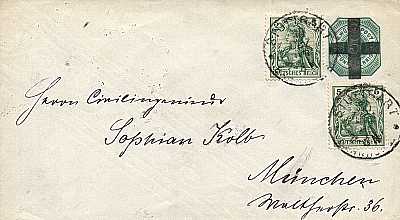 STUTTGART
Deutsches Reich
5
STUTTGART
Deutsches Reich
Herrn Civilingenieur
Sophian Kolb
München
Waltherstr. 36.